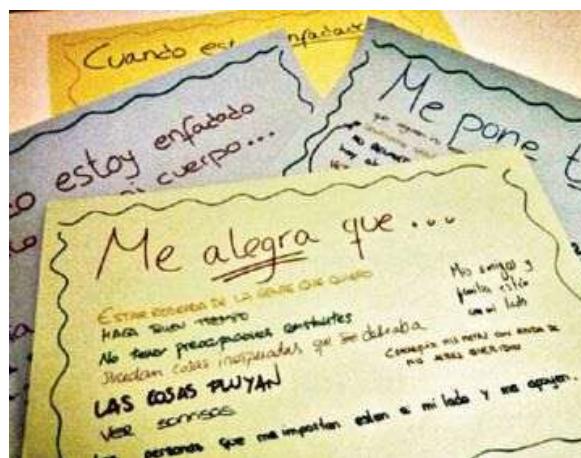 Cuando es
enfadad
o estoy enfadado
mi cuerpo...
Me pone t
Me alegra que ...
ESTAR RODEADA DE LA GENTE QUE QUIERO
HAGA BUEN TIEMPO
No tener preocupaciones constantes
Sucedan cosas inesperadas que
LAS COSAS FLUYAN
VER SONRISAS
personas que me importan esten a mi lado y me apoyen.
Mis amigos y
familia estén
a mi lado
CONSEGUIR MIS METAS CON AYUDA DE
MIS SERES QUERIDOS